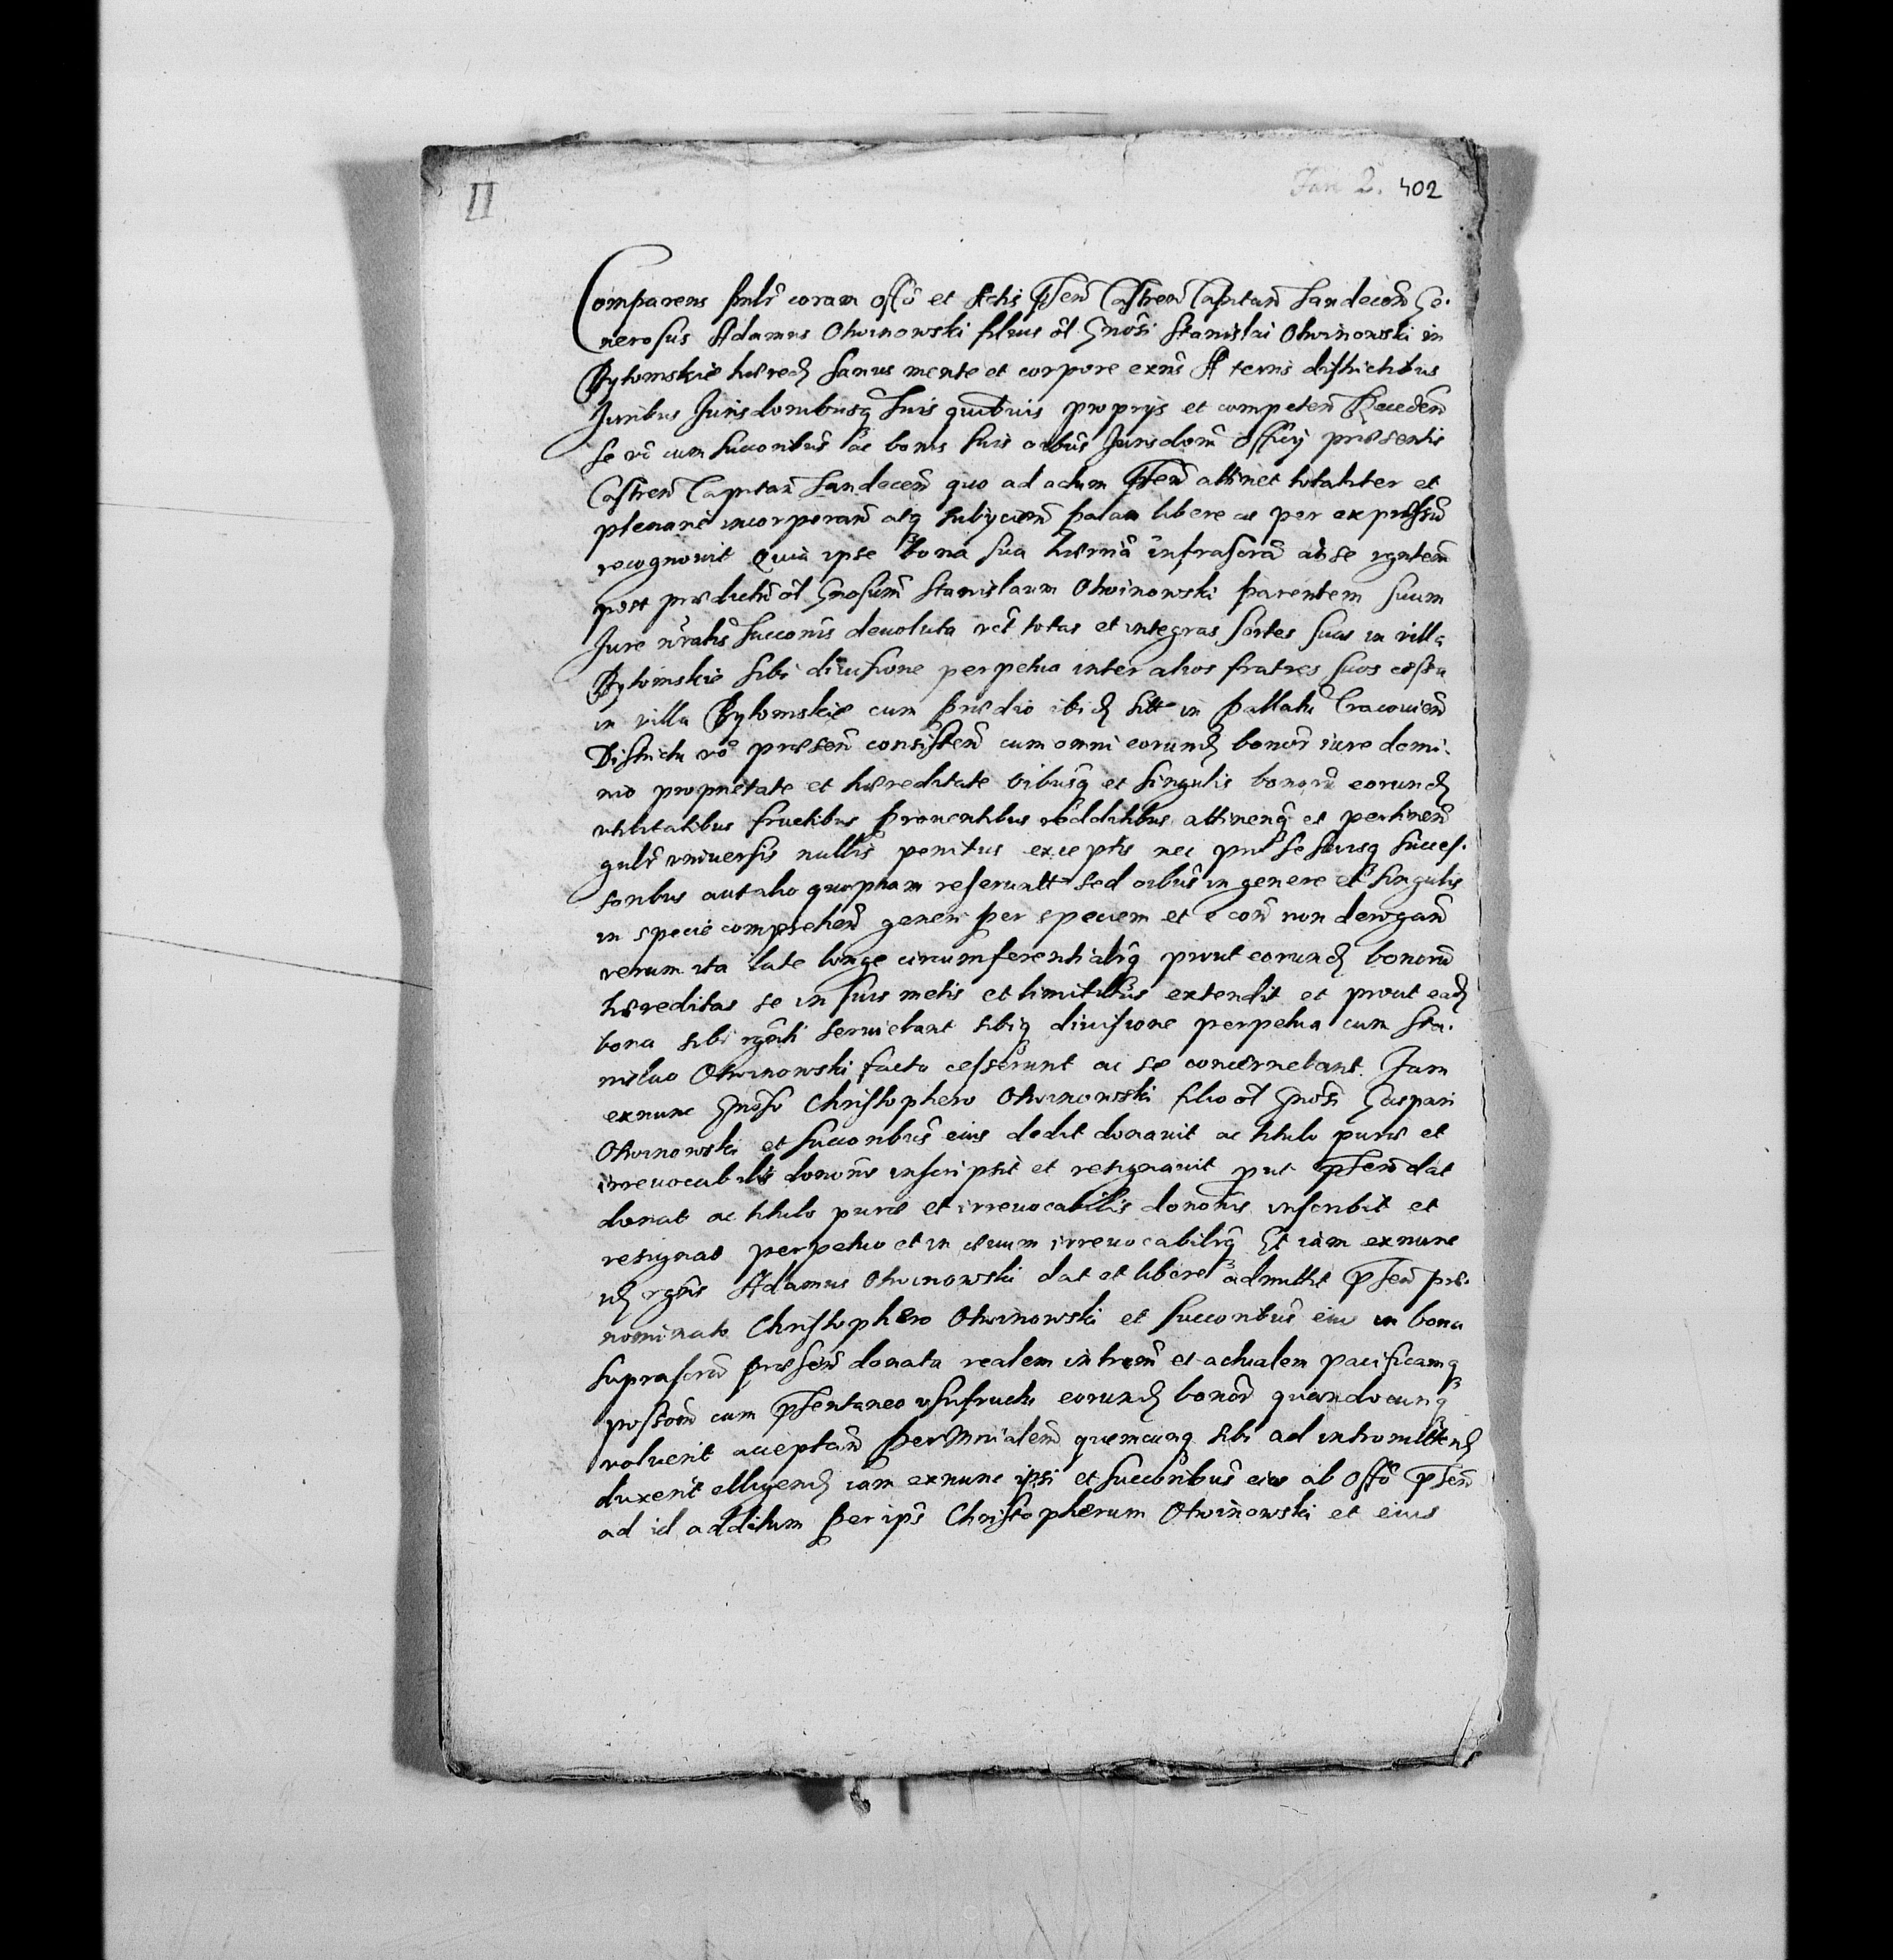 II
Fasc 2. 402
Comparens psnlr coram offo et Actis psen Castren Capitan Sandecen Ge-
nerosus Adamus Otwinowski filius ol Gnosi Stanislai Otwinowski in
Bytomskie hæred sanus mente et corpore exns A terris districtibus
Juribus Jurisdonibusq suis quibusuis proprijs et competen Receden
se vo cum succoribus ac bonis suis oibus Jurisdoni officij præsentis
Castren Capitan Sandecen quo ad actum psen attinet totaliter et
plenarie incorporan atq subijcien palam libere ac per expressum
recognouit Quia ipse bona sua hærria infrascra ad se rgntem
post prædictu ol Gnosum Stanislaum Otwinowski parentem suum
Jure nrali Succonis deuoluta vct totas et integras sortes suas in villa
Bytomskie sibi diuisione perpetua inter alios fratres suos cessa
in villa Bytomskie cum prædio ibid sitt in pallatu Cracouien
Districtu vo præsen consisten cum omni eorund bonor iure domi-
nio proprietate et hæreditate oibusq et singulis bonoru eorund
vtilitatibus fructibus prouentibus redditibus attinen et pertinen
gnlr vniuersis nullis penitus exceptis nec pro se suisq succes-
soribus aut alio quopiam reseruatt sed oibus in genere et singulis
in specie comprehen generi per speciem et e con non derogan
verum ita late longe circumferentialrq prout eorund bonoru
hæreditas se in suis metis et limitibus extendit et prout ead
bona sibi rgnti seruiebant sibiq diuisione perpetua cum Sta-
nislao Otwinowski facta cesserunt ac se concernebant Jam
exnunc Gnoso Christophero Otwinowski filio ol Gnosi Gaspari
Otwinowski et succoribus eius dedit donauit ac titulo puræ et
irreuocabilis dononis inscripsit et resignauit put psen dat
donat ac titulo puræ et irreuocabilis dononis inscribit et
resignat perpetuo et in æuum irreuocabilrq Et iam exnunc
id rgns Adamus Otwinowski dat et libere admittit psen præ-
nominato Christophero Otwinowski et succoribus eius in bona
suprascra præsen donata realem intrem et actualem pacificamq
possoem cum psentaneo vsufructu eorund bonor quandocunq
voluerit acceptan per Mnrialem quemcunq sibi ad intromittend
duxerit elligend iam exnunc ipsi et succoribus eius ab Offo psen
ad id additum per ips Christopherum Otwinowski et eius